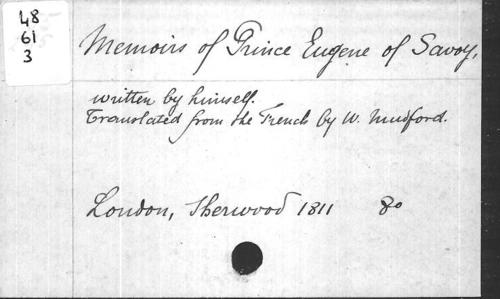 48
61
3
Memoirs of Prince Eugene of Savoy,
written by himself.
Translated from the French by W. Mudford.
London, Sherwood 1811 8o